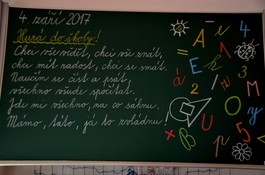 4. září 2017
Hurá do školy!
Chci vše vidět, chci vše znát,
chci mít radost, chci se smát.
Naučím se číst a psát,
všechno všude spočítat.
Jde mi všechno, na co sáhnu.
Mámo, táto, já to zvládnu!
= A 4
2 E k
á 2 U O M
+ B U y 5